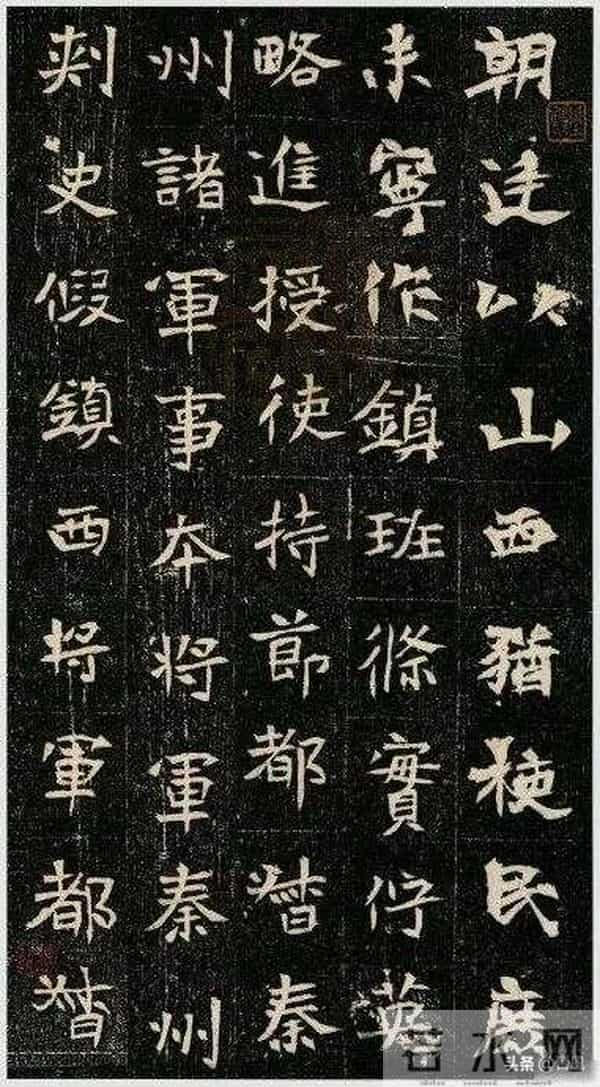 朝廷以山西猶梗民庶
未寧作鎮班條實佇英
略進授使持節都督秦
州諸軍事本將軍秦州
刺史假鎮西將軍都督
头条